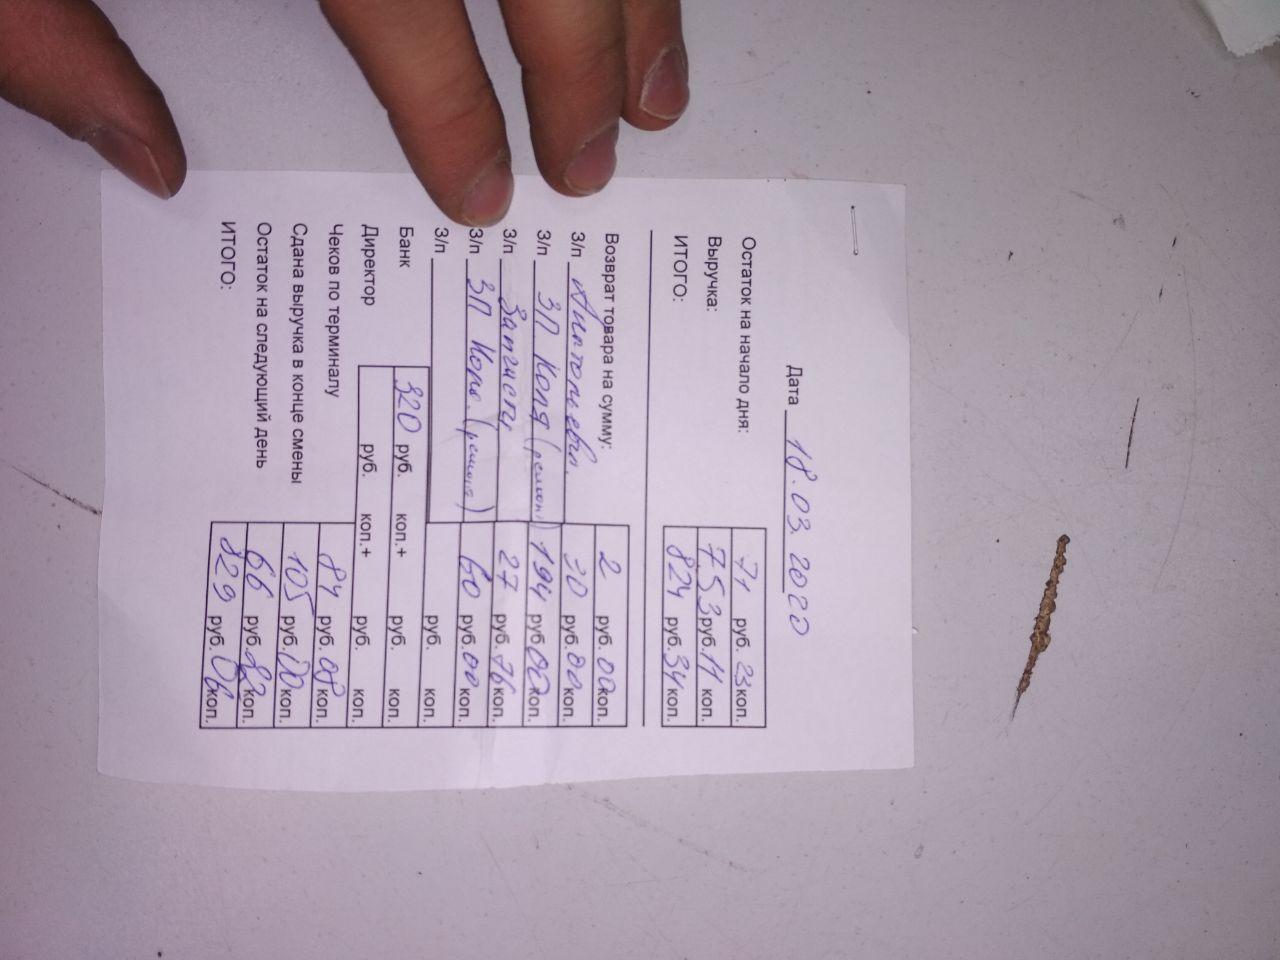 Дата 18.03.2020
Остаток на начало дня: 71 руб. 23 коп.
Выручка: 753 руб. 11 коп.
ИТОГО: 824 руб. 34 коп.
Возврат товара на сумму: 2 руб. 00 коп.
З/п 30 руб. 00 коп.
З/п ЗП Коля (ремонт) 194 руб 00 коп.
З/п Запчасти 27 руб. 76 коп.
З/п ЗП Коля. (ремонт) 60 руб. 00 коп.
З/п руб. коп.
Банк 320 руб. коп.+ руб. коп.
Директор руб. коп.+ руб. коп.
Чеков по терминалу 84 руб. 08 коп.
Сдана выручка в конце смены 105 руб. 00 коп.
Остаток на следующий день 66 руб. 82 коп.
ИТОГО: 829 руб. коп.